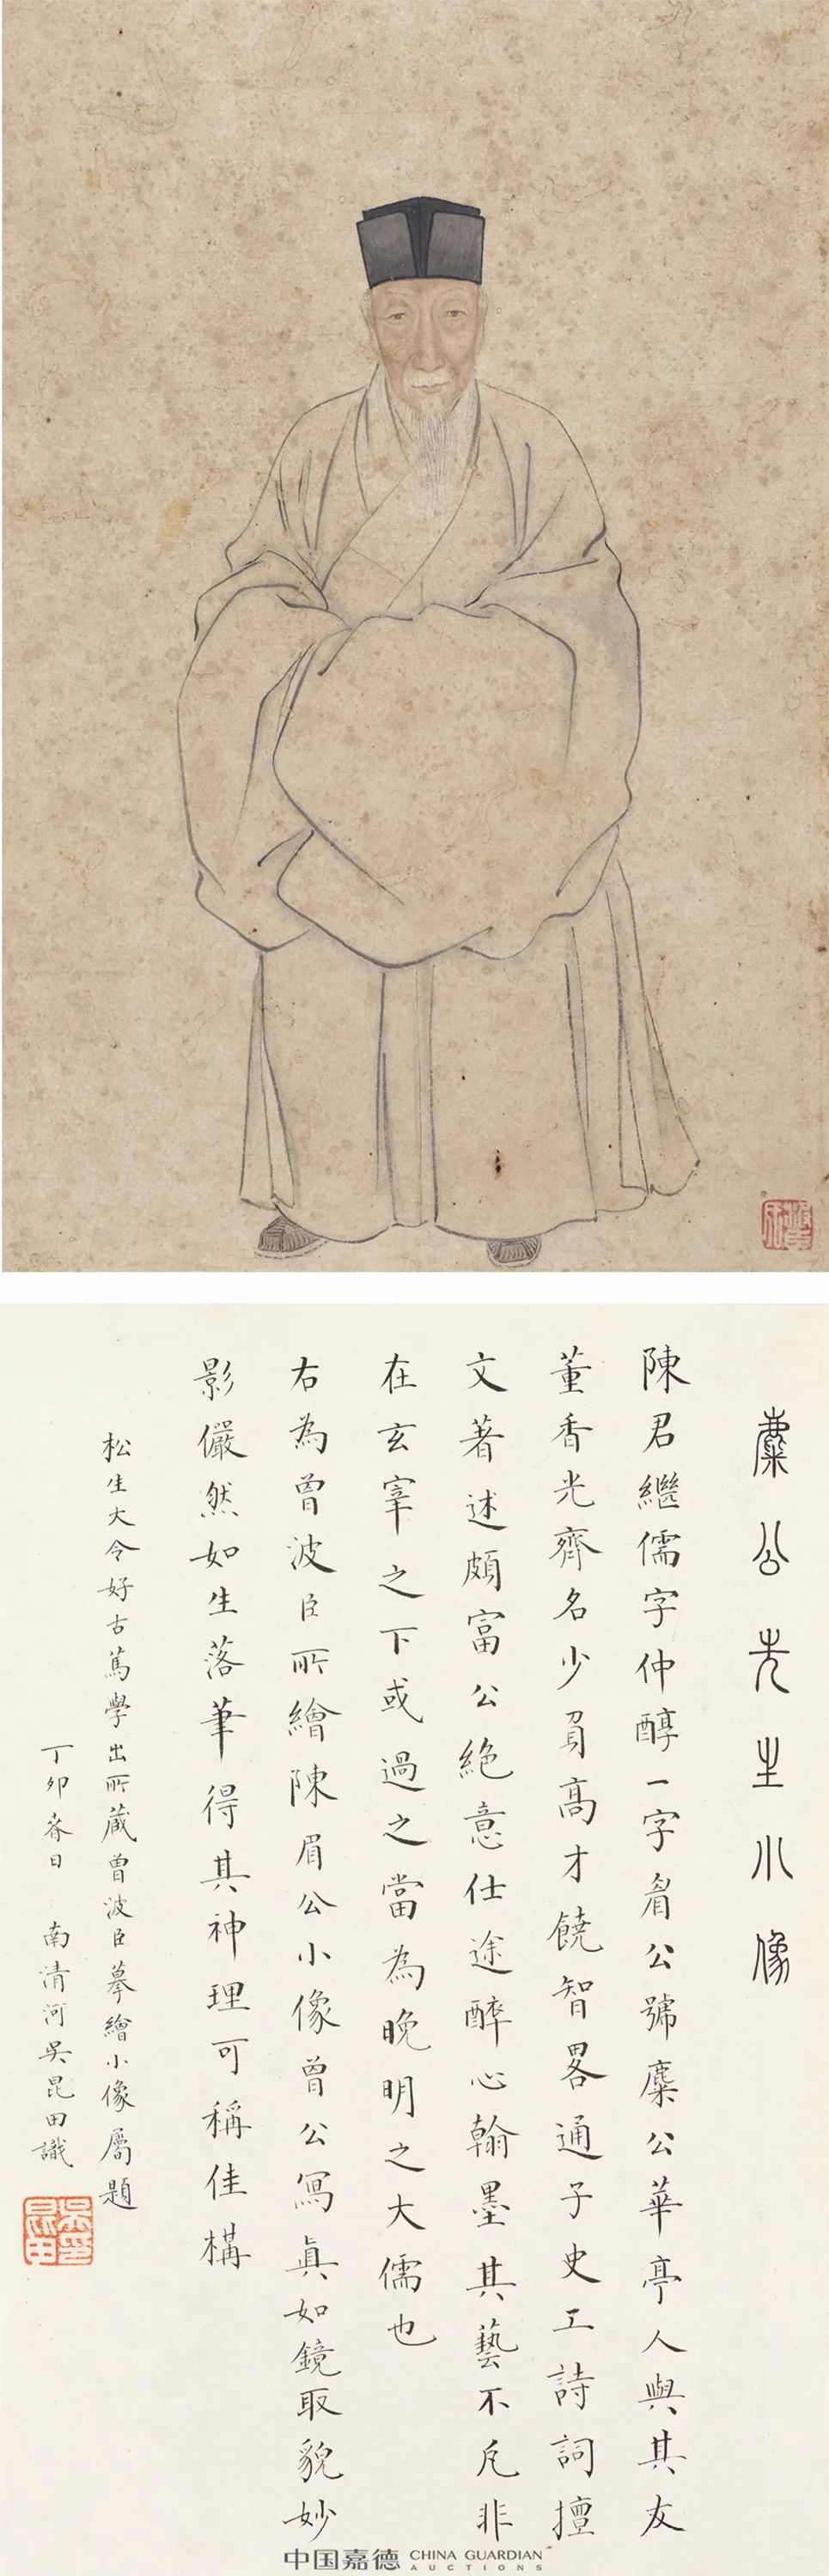 麋公先生小像
陳君繼儒字仲醇一字眉公號麋公華亭人與其友
董香光齊名少負高才饒智畧通子史工詩詞擅
文著述頗富公絕意仕途醉心翰墨其藝不凡非
在玄宰之下或過之當為晚明之大儒也
右為曾波臣所繪陳眉公小像曾公寫真如鏡取貌妙
影儼然如生落筆得其神理可稱佳構
松生大令好古篤學出所藏曾波臣摹繪小像屬題
丁卯春日 南清河吳昆田識
吳昆田印
中国嘉德 CHINA GUARDIAN
AUCTIONS